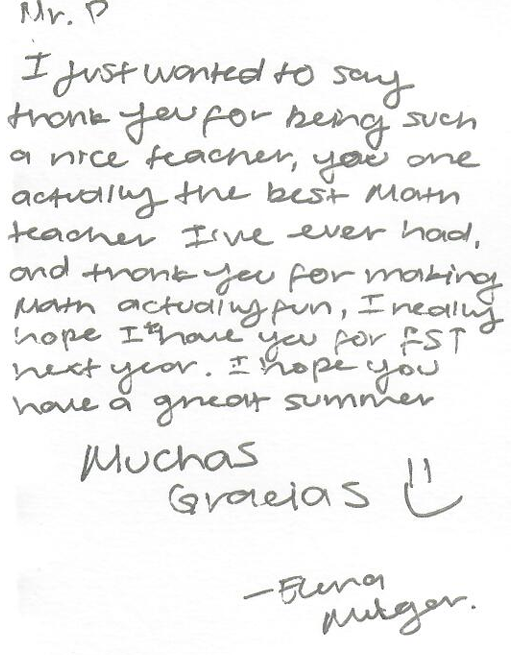 Mr. P
I just wanted to say
thank you for being such
a nice teacher, you are
actually the best Math
teacher I've ever had,
and thank you for making
Math actually fun, I really
hope I have you for FST
next year. I hope you
have a great summer
Muchas
Gracias
-Elena